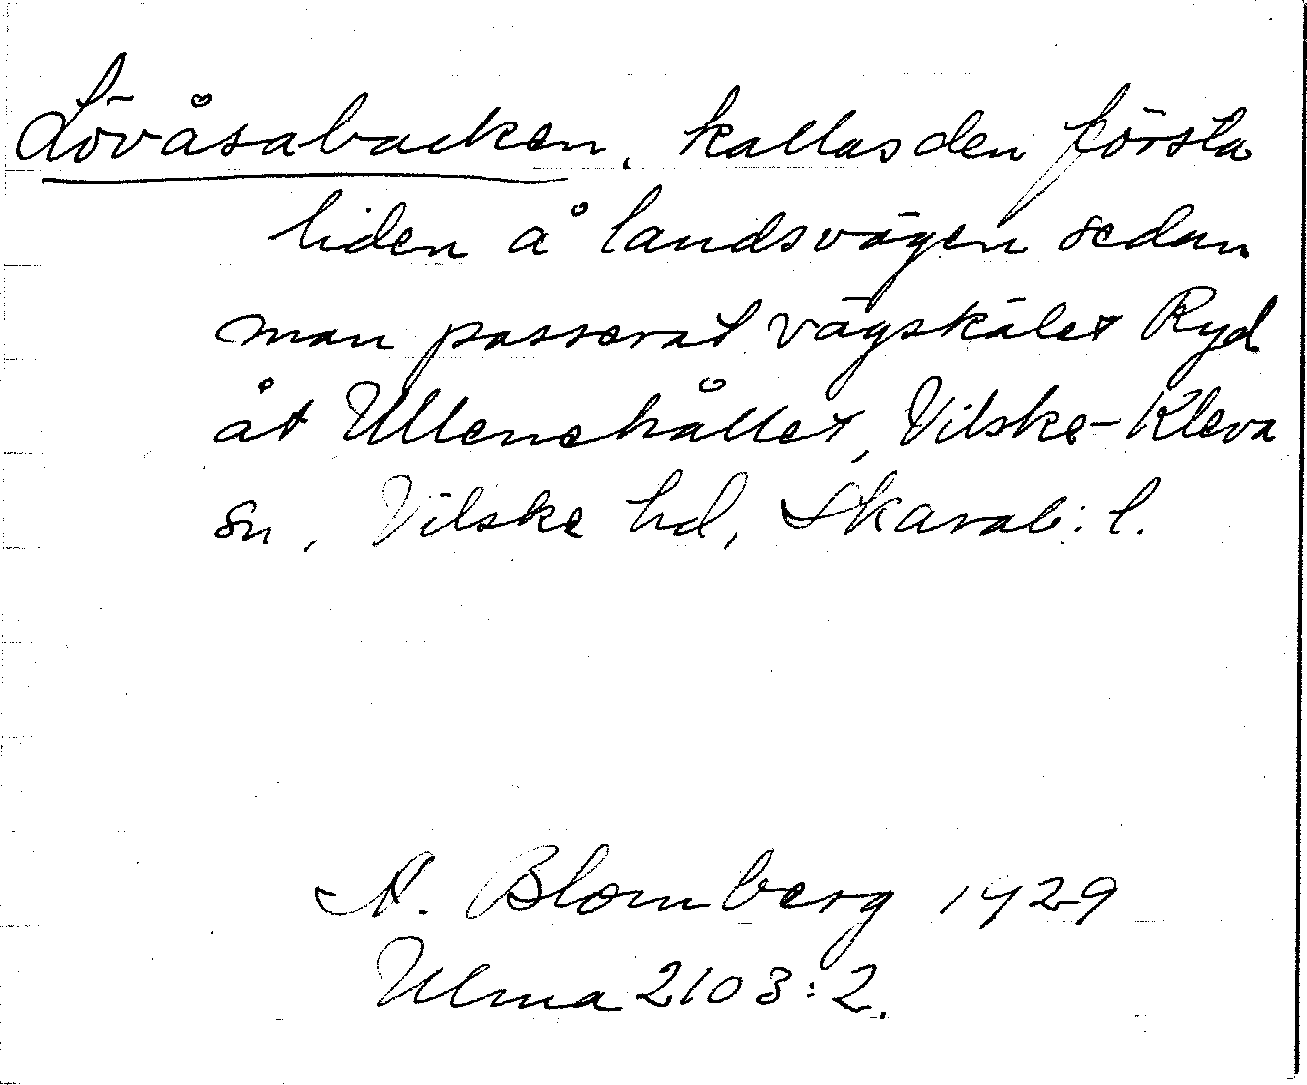 Lövåsabacken. kallas den första
liden å landsvägen sedan
man passerat vägskälet Ryd
åt Ullenehållet, Vilske-Kleva
sn, Vilske hd, Skarab: l.
A. Blomberg 1929
Ulma 2103:2.